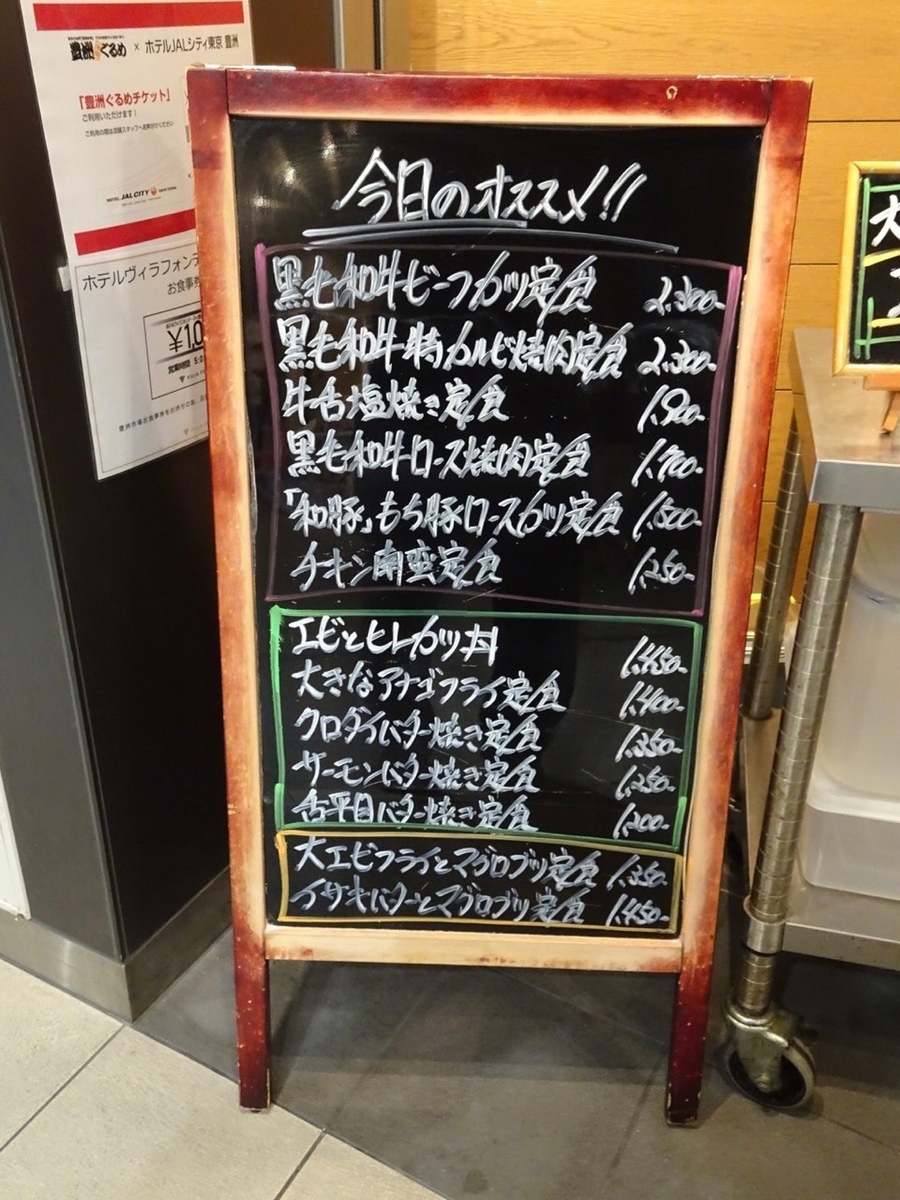 豊洲ぐるめ × ホテルJALシティ東京 豊洲
「豊洲ぐるめチケット」
ご利用いただけます!
ご利用の際は店舗スタッフへお声がけください
HOTEL JAL CITY
ホテルヴィラフォンテ
お食事券
今日のオススメ!!
黒毛和牛ビーフカツ定食 2,300-
黒毛和牛特カルビ焼肉定食 2,300-
牛舌塩焼き定食 1,900-
黒毛和牛ロース焼肉定食 1,700-
「和豚」もち豚ロースカツ定食 1,500-
チキン南蛮定食 1,250-
エビとヒレカツ丼 1,450-
大きなアナゴフライ定食 1,400-
クロダイバター焼き定食 1,350-
サーモンバター焼き定食 1,250-
舌平目バター焼き定食 1,200-
大エビフライとマグロブツ定食 1,350-
イサキバターとマグロブツ定食 1,450-
大